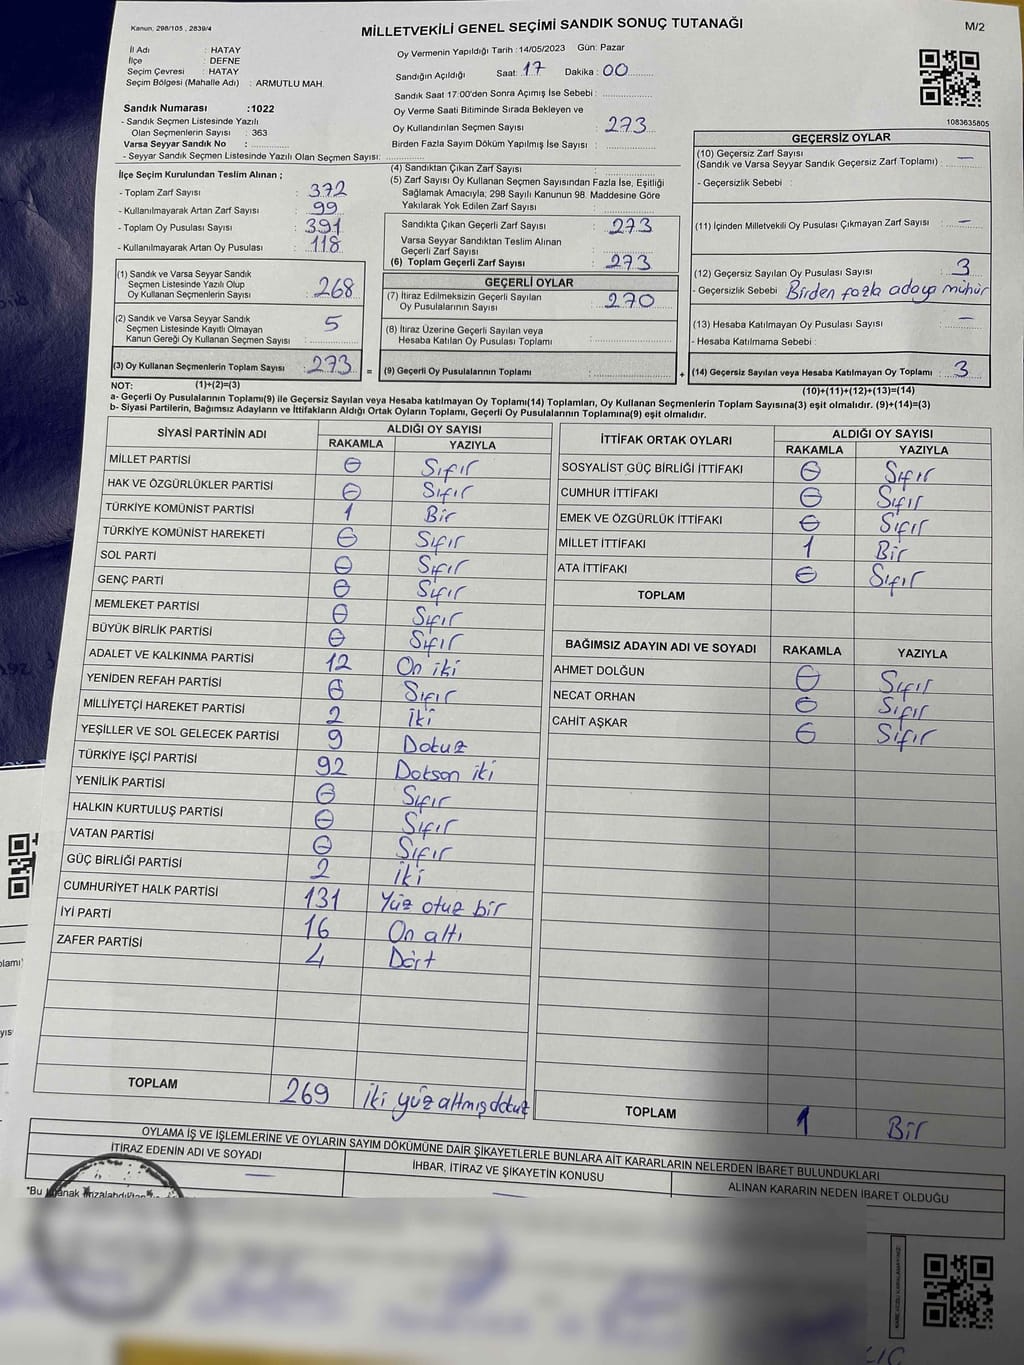 Kanun, 298/105 , 2839/4
MİLLETVEKİLİ GENEL SEÇİMİ SANDIK SONUÇ TUTANAĞI
M/2
İl Adı : HATAY
İlçe : DEFNE
Seçim Çevresi : HATAY
Seçim Bölgesi (Mahalle Adı) : ARMUTLU MAH.
Sandık Numarası :1022
- Sandık Seçmen Listesinde Yazılı
Olan Seçmenlerin Sayısı : 363
Varsa Seyyar Sandık No :
- Seyyar Sandık Seçmen Listesinde Yazılı Olan Seçmen Sayısı:
Oy Vermenin Yapıldığı Tarih : 14/05/2023 Gün: Pazar
Sandığın Açıldığı Saat: 17 Dakika : 00
Sandık Saat 17:00'den Sonra Açımış İse Sebebi :
Oy Verme Saati Bitiminde Sırada Bekleyen ve
Oy Kullandırılan Seçmen Sayısı : 273
Birden Fazla Sayım Döküm Yapılmış İse Sayısı :
1083635805
İlçe Seçim Kurulundan Teslim Alınan ;
- Toplam Zarf Sayısı : 372
- Kullanılmayarak Artan Zarf Sayısı : 99
- Toplam Oy Pusulası Sayısı : 391
- Kullanılmayarak Artan Oy Pusulası : 118
(1) Sandık ve Varsa Seyyar Sandık
Seçmen Listesinde Yazılı Olup
Oy Kullanan Seçmenlerin Sayısı : 268
(2) Sandık ve Varsa Seyyar Sandık
Seçmen Listesinde Kayıtlı Olmayan
Kanun Gereği Oy Kullanan Seçmen Sayısı : 5
(3) Oy Kullanan Seçmenlerin Toplam Sayısı : 273
(4) Sandıktan Çıkan Zarf Sayısı :
(5) Zarf Sayısı Oy Kullanan Seçmen Sayısından Fazla İse, Eşitliği
Sağlamak Amacıyla; 298 Sayılı Kanunun 98. Maddesine Göre
Yakılarak Yok Edilen Zarf Sayısı :
Sandıkta Çıkan Geçerli Zarf Sayısı : 273
Varsa Seyyar Sandıktan Teslim Alınan
Geçerli Zarf Sayısı :
(6) Toplam Geçerli Zarf Sayısı : 273
GEÇERLİ OYLAR
(7) İtiraz Edilmeksizin Geçerli Sayılan
Oy Pusulalarının Sayısı : 270
(8) İtiraz Üzerine Geçerli Sayılan veya
Hesaba Katılan Oy Pusulası Toplamı :
= (9) Geçerli Oy Pusulalarının Toplamı :
GEÇERSİZ OYLAR
(10) Geçersiz Zarf Sayısı
(Sandık ve Varsa Seyyar Sandık Geçersiz Zarf Toplamı) : —
- Geçersizlik Sebebi :
(11) İçinden Milletvekili Oy Pusulası Çıkmayan Zarf Sayısı : —
(12) Geçersiz Sayılan Oy Pusulası Sayısı : 3
- Geçersizlik Sebebi : Birden fazla adaya mühür
(13) Hesaba Katılmayan Oy Pusulası Sayısı : —
- Hesaba Katılmama Sebebi :
+ (14) Geçersiz Sayılan veya Hesaba Katılmayan Oy Toplamı : 3
NOT: (1)+(2)=(3)
(10)+(11)+(12)+(13)=(14)
a- Geçerli Oy Pusulalarının Toplamı(9) ile Geçersiz Sayılan veya Hesaba katılmayan Oy Toplamı(14) Toplamları, Oy Kullanan Seçmenlerin Toplam Sayısına(3) eşit olmalıdır. (9)+(14)=(3)
b- Siyasi Partilerin, Bağımsız Adayların ve İttifakların Aldığı Ortak Oyların Toplamı, Geçerli Oy Pusulalarının Toplamına(9) eşit olmalıdır.
SİYASİ PARTİNİN ADI ALDIĞI OY SAYISI
RAKAMLA YAZIYLA
MİLLET PARTİSİ 0 Sıfır
HAK VE ÖZGÜRLÜKLER PARTİSİ 0 Sıfır
TÜRKİYE KOMÜNİST PARTİSİ 1 Bir
TÜRKİYE KOMÜNİST HAREKETİ 0 Sıfır
SOL PARTİ 0 Sıfır
GENÇ PARTİ 0 Sıfır
MEMLEKET PARTİSİ 0 Sıfır
BÜYÜK BİRLİK PARTİSİ 0 Sıfır
ADALET VE KALKINMA PARTİSİ 12 On iki
YENİDEN REFAH PARTİSİ 0 Sıfır
MİLLİYETÇİ HAREKET PARTİSİ 2 İki
YEŞİLLER VE SOL GELECEK PARTİSİ 9 Dokuz
TÜRKİYE İŞÇİ PARTİSİ 92 Doksan iki
YENİLİK PARTİSİ 0 Sıfır
HALKIN KURTULUŞ PARTİSİ 0 Sıfır
VATAN PARTİSİ 0 Sıfır
GÜÇ BİRLİĞİ PARTİSİ 2 İki
CUMHURİYET HALK PARTİSİ 131 Yüz otuz bir
İYİ PARTİ 16 On altı
ZAFER PARTİSİ 4 Dört
TOPLAM 269 İki yüz altmış dokuz
İTTİFAK ORTAK OYLARI ALDIĞI OY SAYISI
RAKAMLA YAZIYLA
SOSYALİST GÜÇ BİRLİĞİ İTTİFAKI 0 Sıfır
CUMHUR İTTİFAKI 0 Sıfır
EMEK VE ÖZGÜRLÜK İTTİFAKI 0 Sıfır
MİLLET İTTİFAKI 1 Bir
ATA İTTİFAKI 0 Sıfır
TOPLAM
BAĞIMSIZ ADAYIN ADI VE SOYADI RAKAMLA YAZIYLA
AHMET DOLĞUN 0 Sıfır
NECAT ORHAN 0 Sıfır
CAHİT AŞKAR 0 Sıfır
TOPLAM 1 Bir
OYLAMA İŞ VE İŞLEMLERİNE VE OYLARIN SAYIM DÖKÜMÜNE DAİR ŞİKAYETLERLE BUNLARA AİT KARARLARIN NELERDEN İBARET BULUNDUKLARI
İTİRAZ EDENİN ADI VE SOYADI İHBAR, İTİRAZ VE ŞİKAYETİN KONUSU ALINAN KARARIN NEDEN İBARET OLDUĞU
*Bu